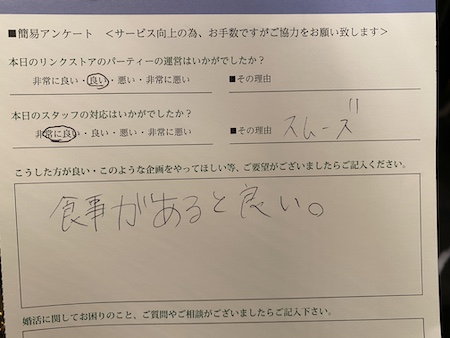 ■簡易アンケート ＜サービス向上の為、お手数ですがご協力をお願い致します＞
本日のリンクストアのパーティーの運営はいかがでしたか？
非常に良い・良い・悪い・非常に悪い ■その理由
本日のスタッフの対応はいかがでしたか？
非常に良い・良い・悪い・非常に悪い ■その理由 スムーズ
こうした方が良い・このような企画をやってほしい等、ご要望がございましたらご記入ください。
食事があると良い。
婚活に関してお困りのこと、ご質問やご相談がございましたらご記入下さい。